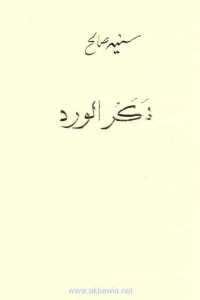 سنية صالح
ذكر الورد
www.akhawia.net